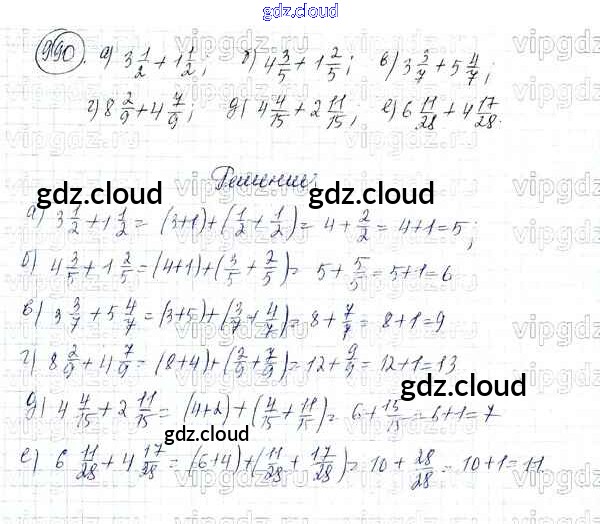 gdz.cloud
990. а) 3 1/2 + 1 1/2; б) 4 3/5 + 1 2/5; в) 3 3/7 + 5 4/7;
г) 8 2/9 + 4 7/9; д) 4 4/15 + 2 11/15; е) 6 11/28 + 4 17/28.
Решение:
gdz.cloud gdz.cloud
а) 3 1/2 + 1 1/2 = (3+1) + (1/2 + 1/2) = 4 + 2/2 = 4+1 = 5;
б) 4 3/5 + 1 2/5 = (4+1) + (3/5 + 2/5) = 5 + 5/5 = 5+1 = 6
в) 3 3/7 + 5 4/7 = (3+5) + (3/7 + 4/7) = 8 + 7/7 = 8+1 = 9
г) 8 2/9 + 4 7/9 = (8+4) + (2/9 + 7/9) = 12 + 9/9 = 12+1 = 13
gdz.cloud
д) 4 4/15 + 2 11/15 = (4+2) + (4/15 + 11/15) = 6 + 15/15 = 6+1 = 7
gdz.cloud
е) 6 11/28 + 4 17/28 = (6+4) + (11/28 + 17/28) = 10 + 28/28 = 10+1 = 11